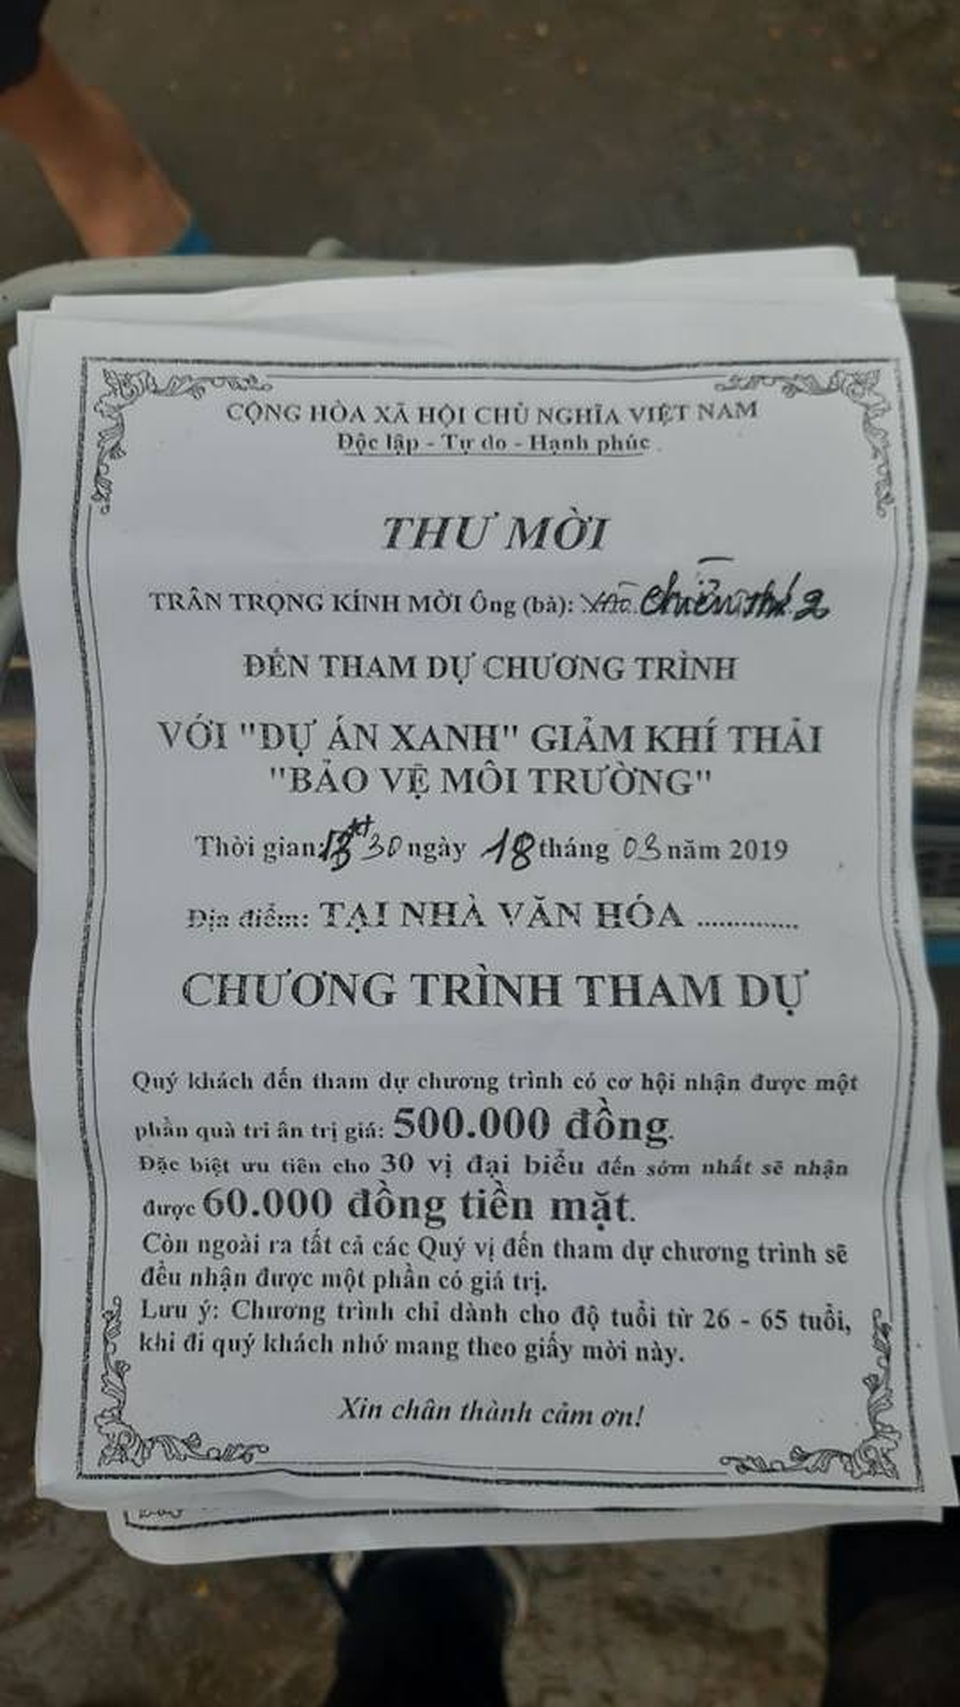 CỘNG HÒA XÃ HỘI CHỦ NGHĨA VIỆT NAM
Độc lập - Tự do - Hạnh phúc
THƯ MỜI
TRÂN TRỌNG KÍNH MỜI Ông (bà): chiều thứ 2
ĐẾN THAM DỰ CHƯƠNG TRÌNH
VỚI "DỰ ÁN XANH" GIẢM KHÍ THẢI
"BẢO VỆ MÔI TRƯỜNG"
Thời gian: 30 ngày 18 tháng 03 năm 2019
Địa điểm: TẠI NHÀ VĂN HÓA ..............
CHƯƠNG TRÌNH THAM DỰ
Quý khách đến tham dự chương trình có cơ hội nhận được một
phần quà tri ân trị giá: 500.000 đồng.
Đặc biệt ưu tiên cho 30 vị đại biểu đến sớm nhất sẽ nhận
được 60.000 đồng tiền mặt.
Còn ngoài ra tất cả các Quý vị đến tham dự chương trình sẽ
đều nhận được một phần có giá trị.
Lưu ý: Chương trình chỉ dành cho độ tuổi từ 26 - 65 tuổi,
khi đi quý khách nhớ mang theo giấy mời này.
Xin chân thành cảm ơn!